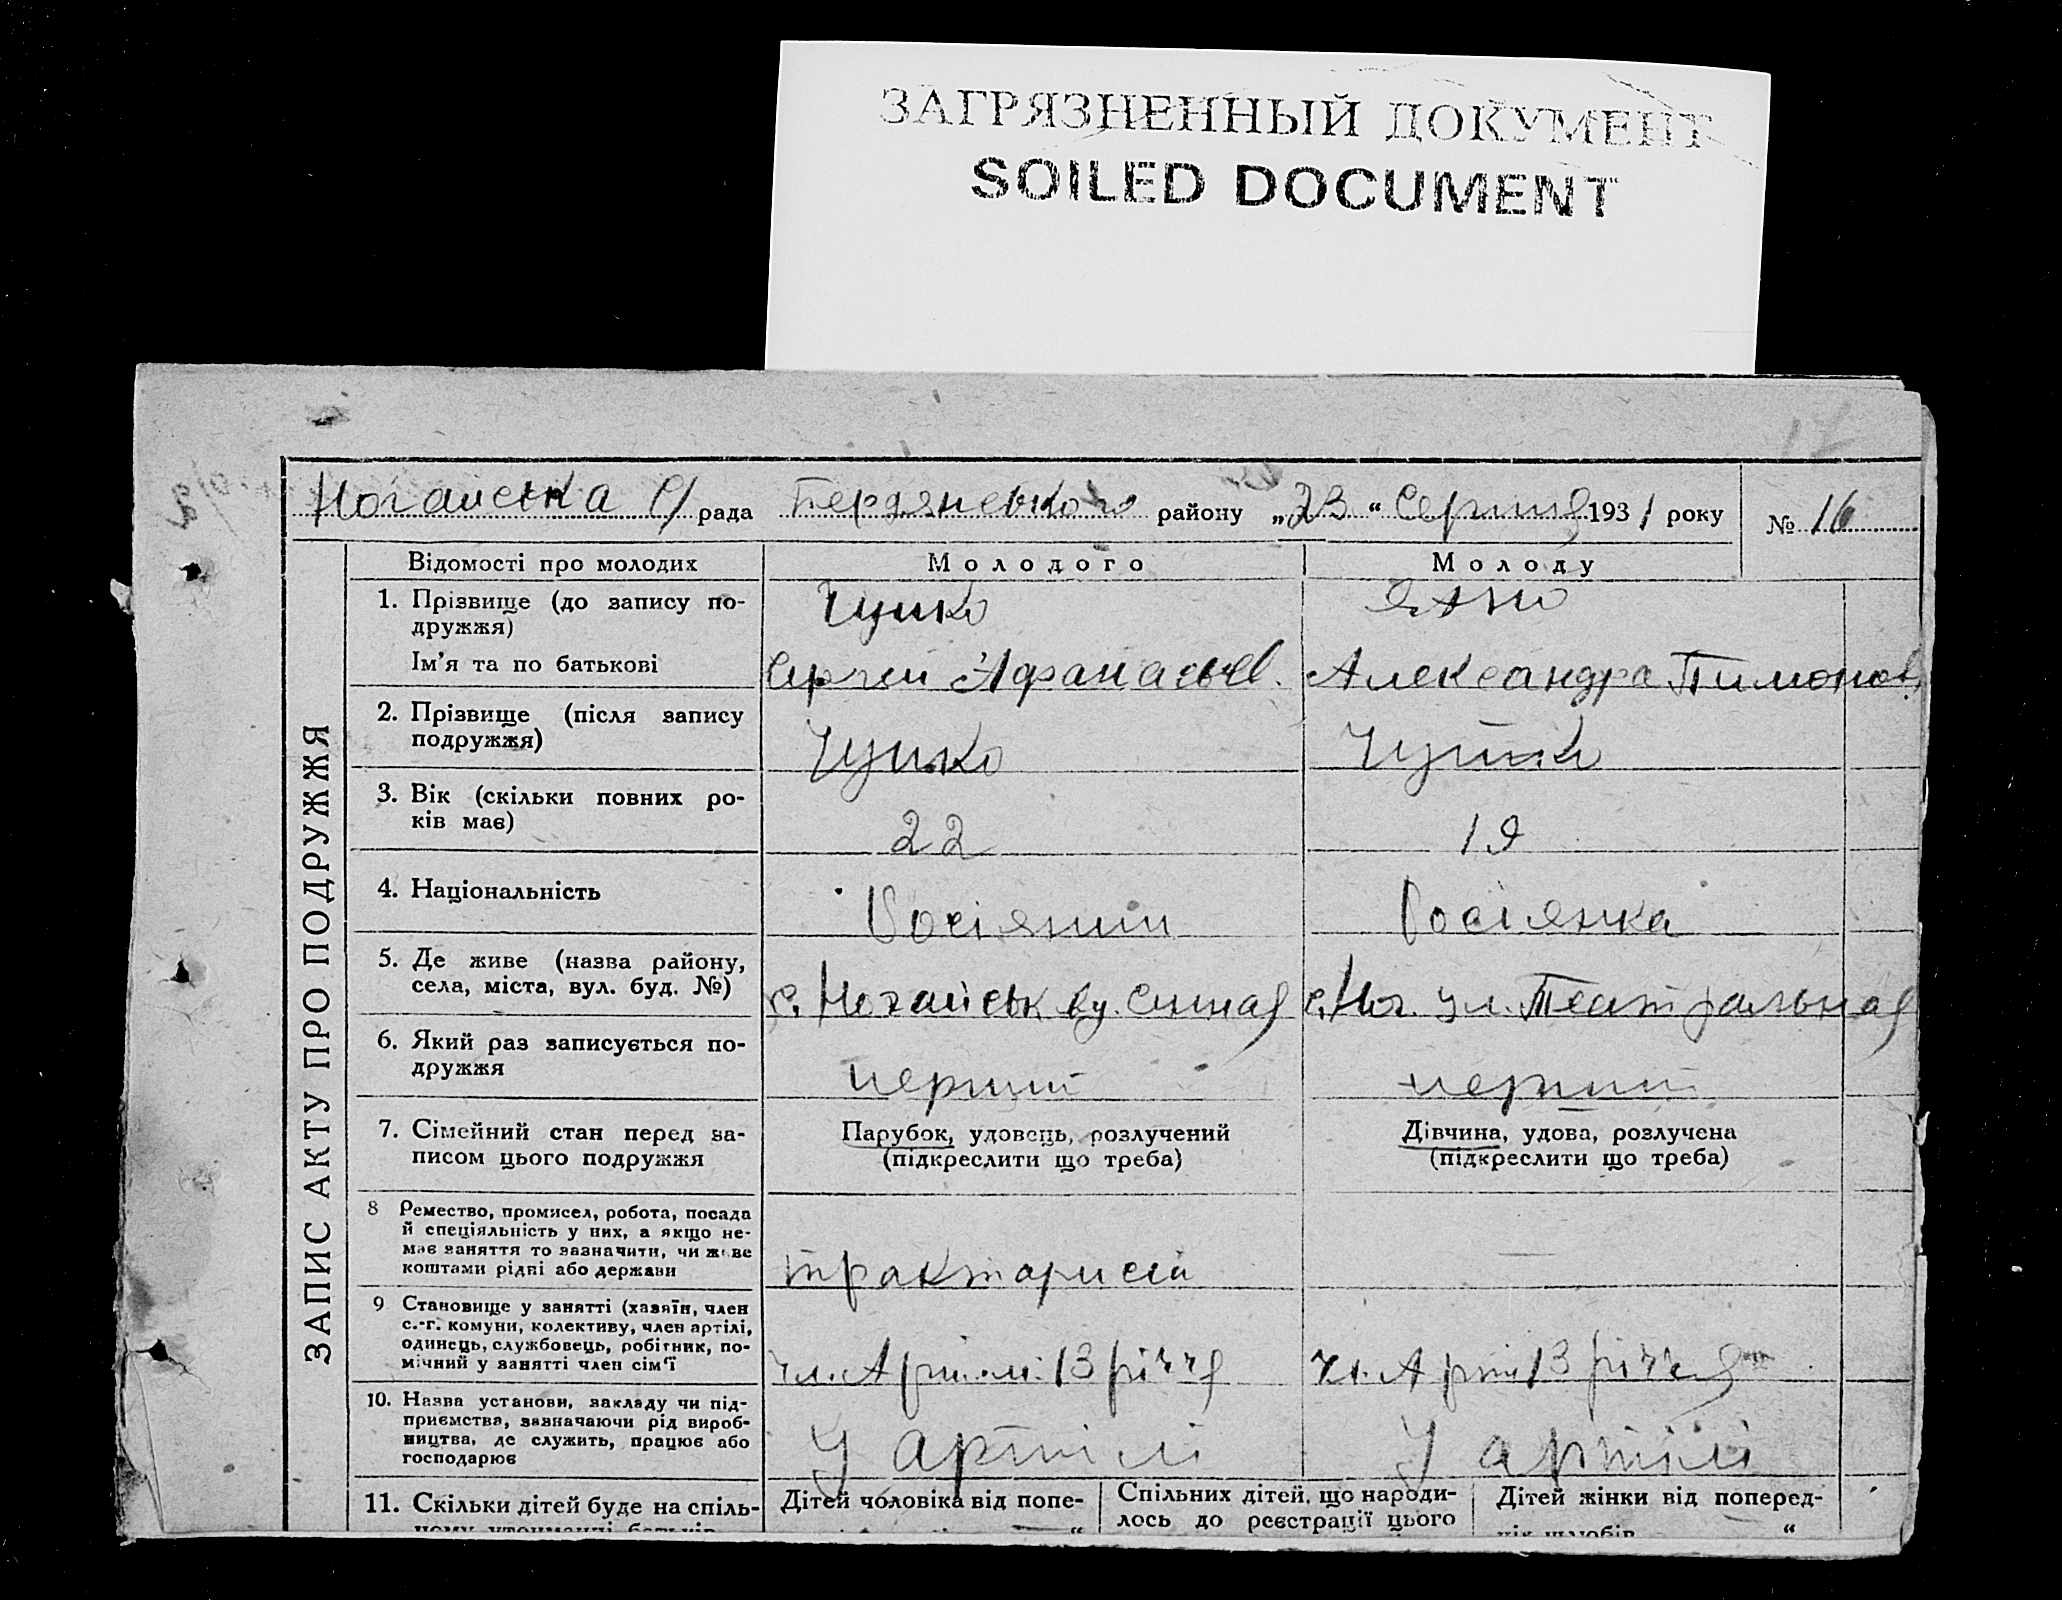 ЗАГРЯЗНЕННЫЙ ДОКУМЕНТ
SOILED DOCUMENT
Ногайська С/рада Бердянського району „23“ Серпня 1931 року № 16
ЗАПИС АКТУ ПРО ПОДРУЖЖЯ
Відомості про молодих Молодого Молоду
1. Прізвище (до запису по-
дружжя)
Ім'я та по батькові Сергій Афанасьев. Александра Тимонов.
2. Прізвище (після запису
подружжя)
3. Вік (скільки повних ро-
ків має) 22 19
4. Національність Росіянин Росіянка
5. Де живе (назва району,
села, міста, вул. буд. №) с. Ногайськ ву. с. Ног. ул. Театральная
6. Який раз записується по-
дружжя перший перший
7. Сімейний стан перед за-
писом цього подружжя
Парубок, удовець, розлучений
(підкреслити що треба)
Дівчина, удова, розлучена
(підкреслити що треба)
8 Ремество, промисел, робота, посада
й спеціяльність у них, а якщо не-
має заняття то зазначити, чи живе
коштами рідні або держави трактарист —
9 Становище у занятті (хазяїн, член
с.-г. комуни, колективу, член артілі,
одинець, службовець, робітник, по-
мічний у занятті член сім'ї чл. Артілі 13 річчя чл. Арт 13 річчя
10. Назва установи, закладу чи під-
приємства, зазначаючи рід вироб-
ництва, де служить, працює або
господарює У артілі У артілі
11. Скільки дітей буде на спіль-
ному утриманні батьків
Дітей чоловіка від попе-
Спільних дітей, що народи-
лось до реєстрації цього
Дітей жінки від поперед-
ніх шлюбів